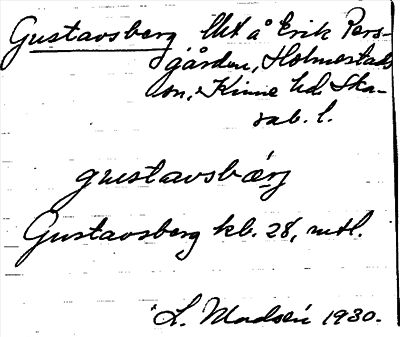 Gustavsberg lht å Erik Pers-
gården, Holmestads
sn, Kinne hd. Ska-
rab. l.
gustavsbærj
Gustavsberg kb. 28, mtl.
L. Modsén 1930.